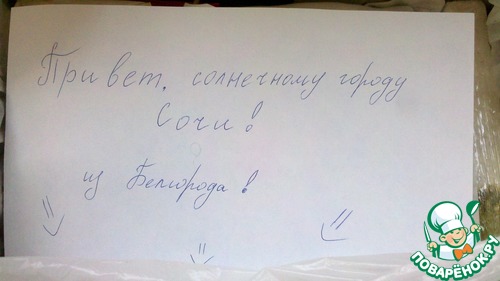 Привет, солнечному городу
Сочи!
из Белгорода!
ПОВАРЁНОК.РУ